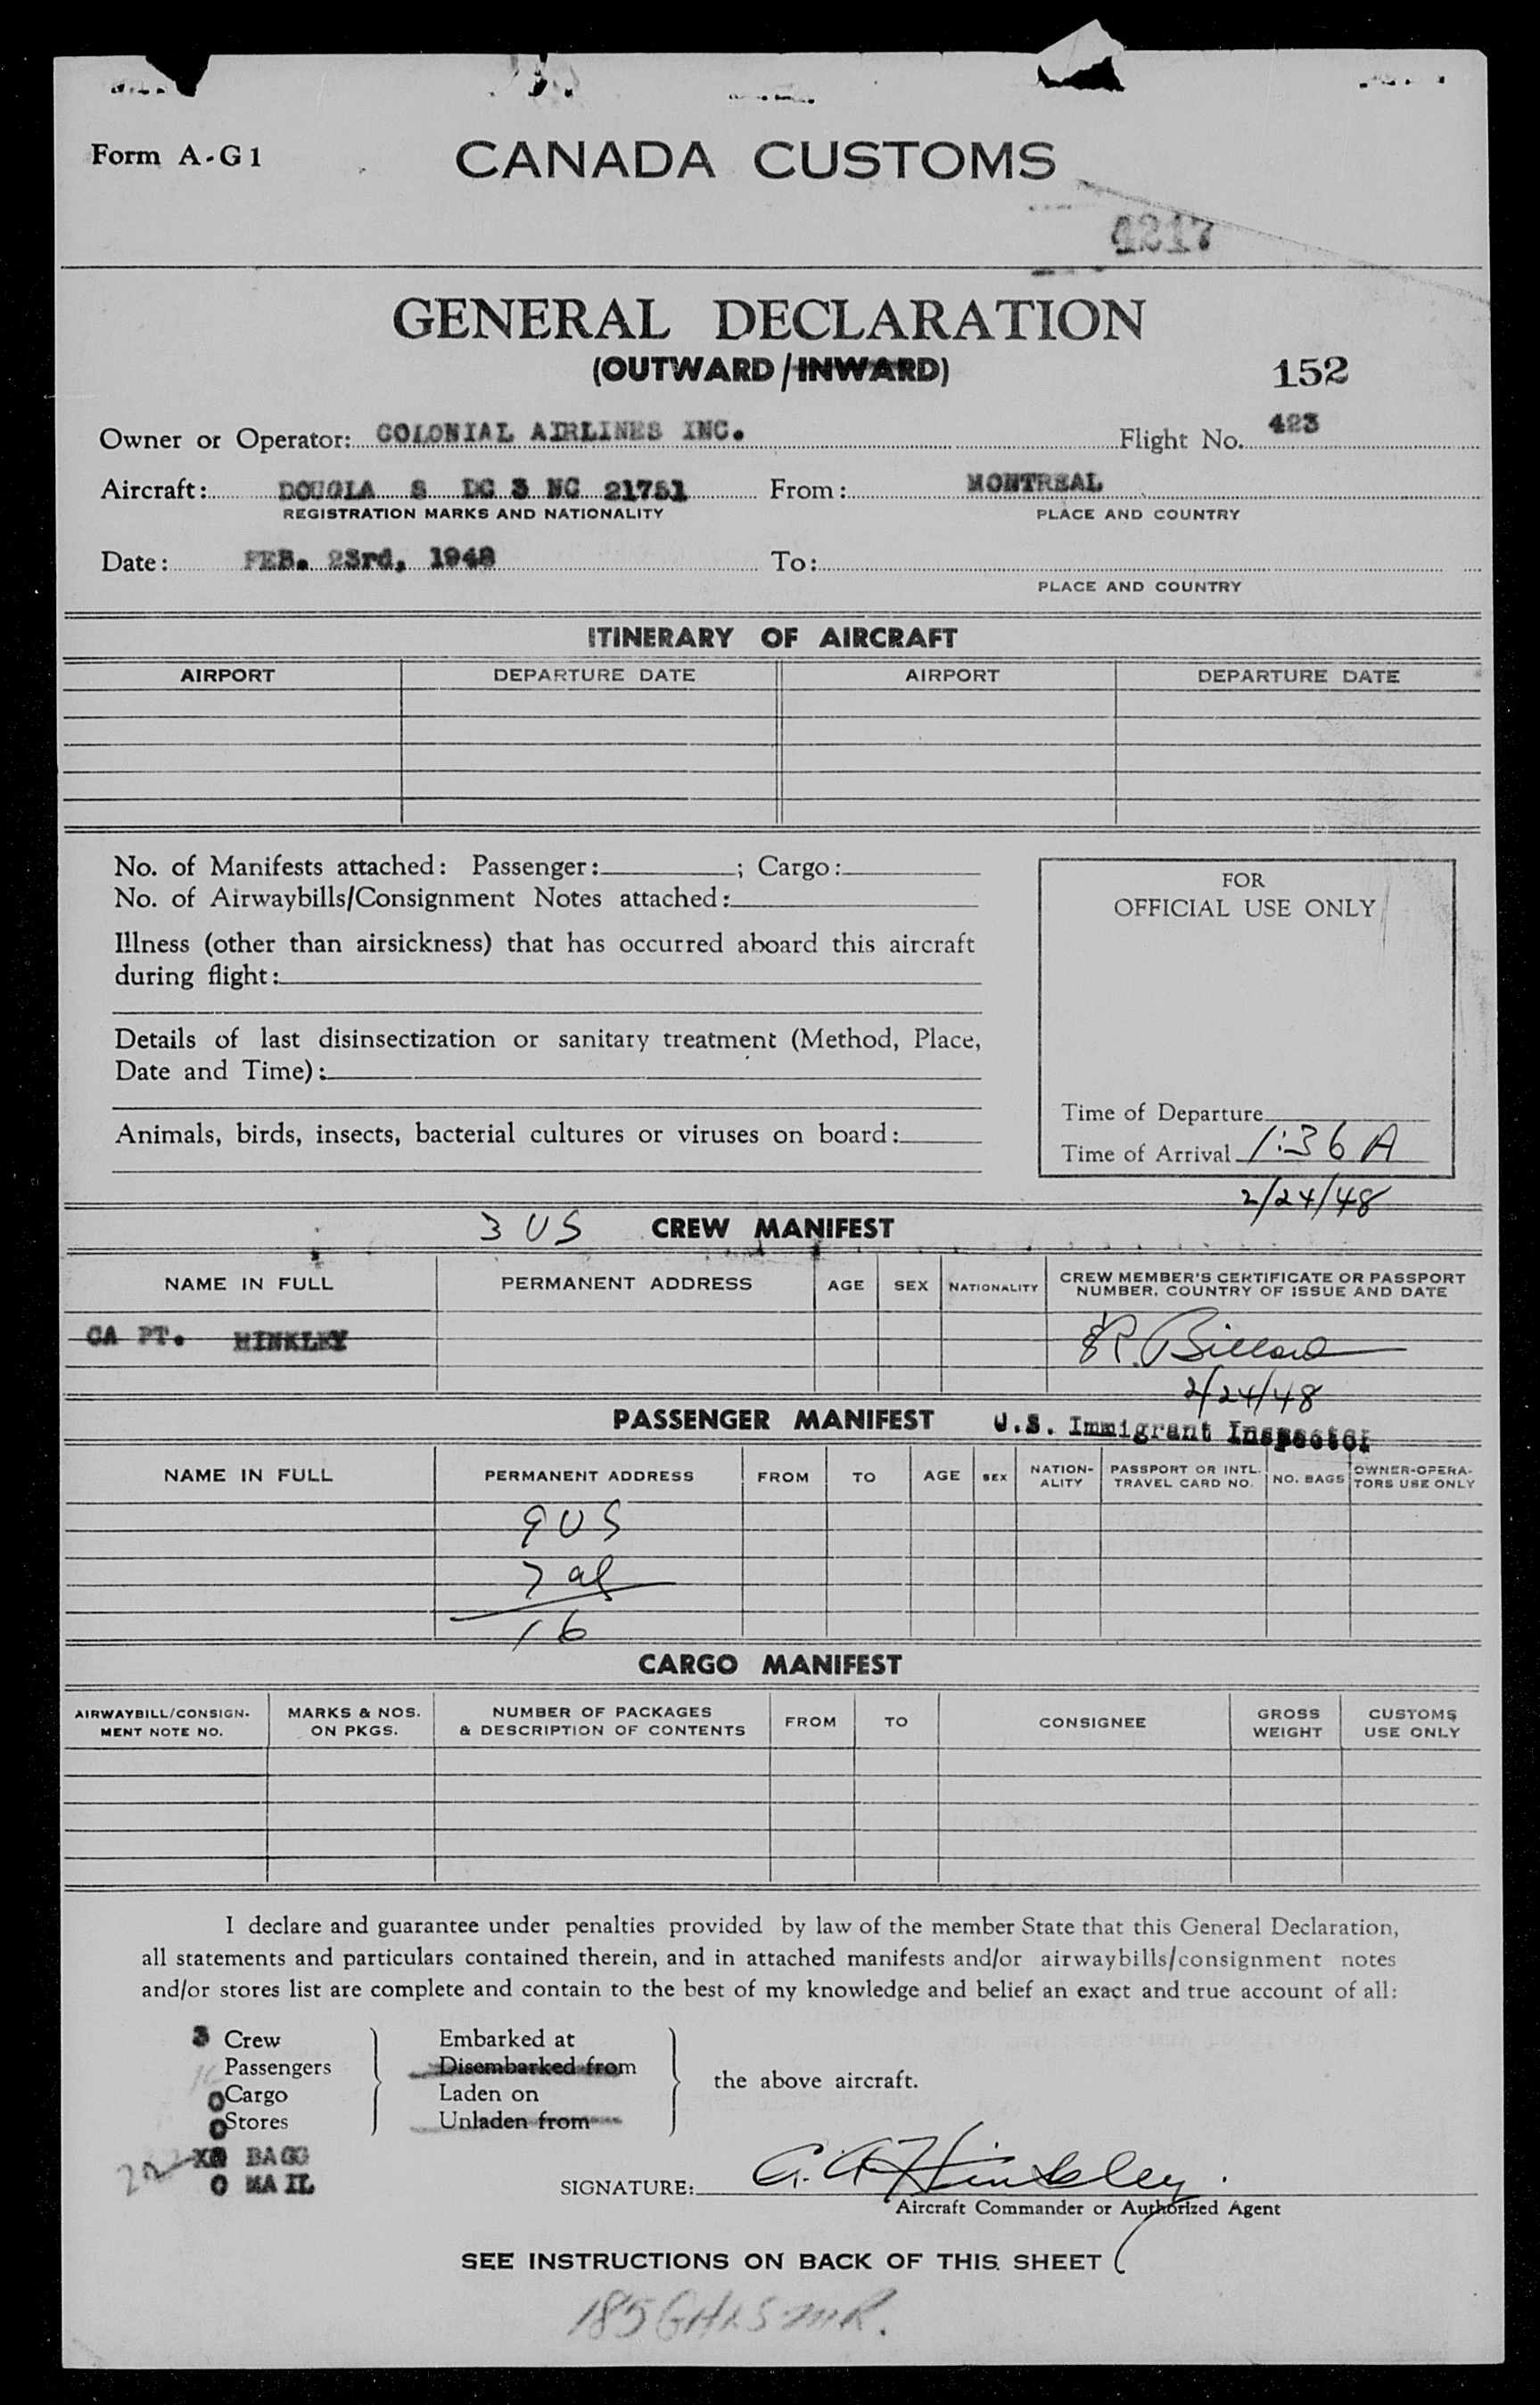 Form A-G1
CANADA CUSTOMS
4217
GENERAL DECLARATION
(OUTWARD/INWARD)
152
Owner or Operator: COLONIAL AIRLINES INC. Flight No. 423
Aircraft: DOUGLA S DC 3 NC 21751 From: MONTREAL
REGISTRATION MARKS AND NATIONALITY PLACE AND COUNTRY
Date: FEB. 23rd, 1948 To:
PLACE AND COUNTRY
ITINERARY OF AIRCRAFT
AIRPORT DEPARTURE DATE AIRPORT DEPARTURE DATE
No. of Manifests attached: Passenger: ; Cargo:
No. of Airwaybills/Consignment Notes attached:
Illness (other than airsickness) that has occurred aboard this aircraft
during flight:
Details of last disinsectization or sanitary treatment (Method, Place,
Date and Time):
Animals, birds, insects, bacterial cultures or viruses on board:
FOR
OFFICIAL USE ONLY
Time of Departure
Time of Arrival 1:36 A
2/24/48
3 US CREW MANIFEST
NAME IN FULL PERMANENT ADDRESS AGE SEX NATIONALITY CREW MEMBER'S CERTIFICATE OR PASSPORT
NUMBER, COUNTRY OF ISSUE AND DATE
CA PT. HINKLEY R. Billard
2/24/48
PASSENGER MANIFEST U.S. Immigrant Inspector
NAME IN FULL PERMANENT ADDRESS FROM TO AGE SEX NATION-
ALITY PASSPORT OR INTL.
TRAVEL CARD NO. NO. BAGS OWNER-OPERA-
TORS USE ONLY
9 US
7 al
16
CARGO MANIFEST
AIRWAYBILL/CONSIGN-
MENT NOTE NO. MARKS & NOS.
ON PKGS. NUMBER OF PACKAGES
& DESCRIPTION OF CONTENTS FROM TO CONSIGNEE GROSS
WEIGHT CUSTOMS
USE ONLY
I declare and guarantee under penalties provided by law of the member State that this General Declaration,
all statements and particulars contained therein, and in attached manifests and/or airwaybills/consignment notes
and/or stores list are complete and contain to the best of my knowledge and belief an exact and true account of all:
3 Crew Embarked at
16 Passengers Disembarked from
0 Cargo Laden on
0 Stores Unladen from
the above aircraft.
BAGG
0 MA IL
SIGNATURE: G. A. Hinkley
Aircraft Commander or Authorized Agent
SEE INSTRUCTIONS ON BACK OF THIS SHEET